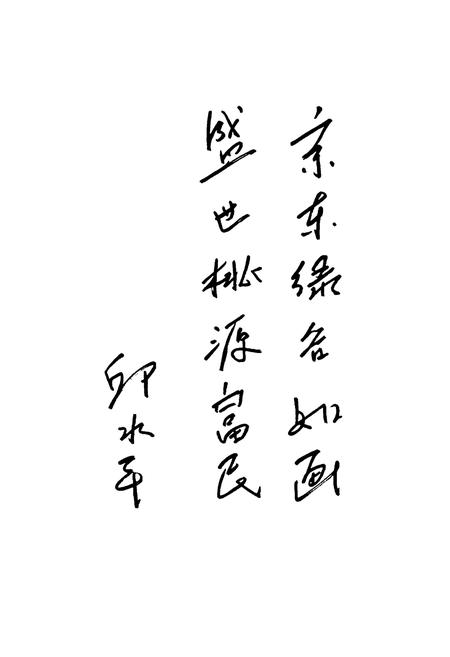 京东绿谷如画
盛世桃源富民
邱水平